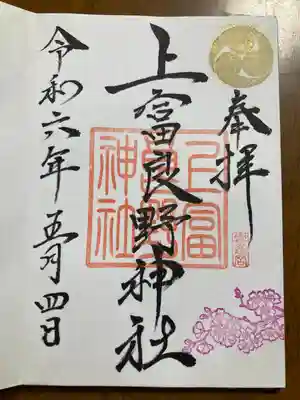 奉拝
上富良野神社
上富良野神社
令和六年五月四日